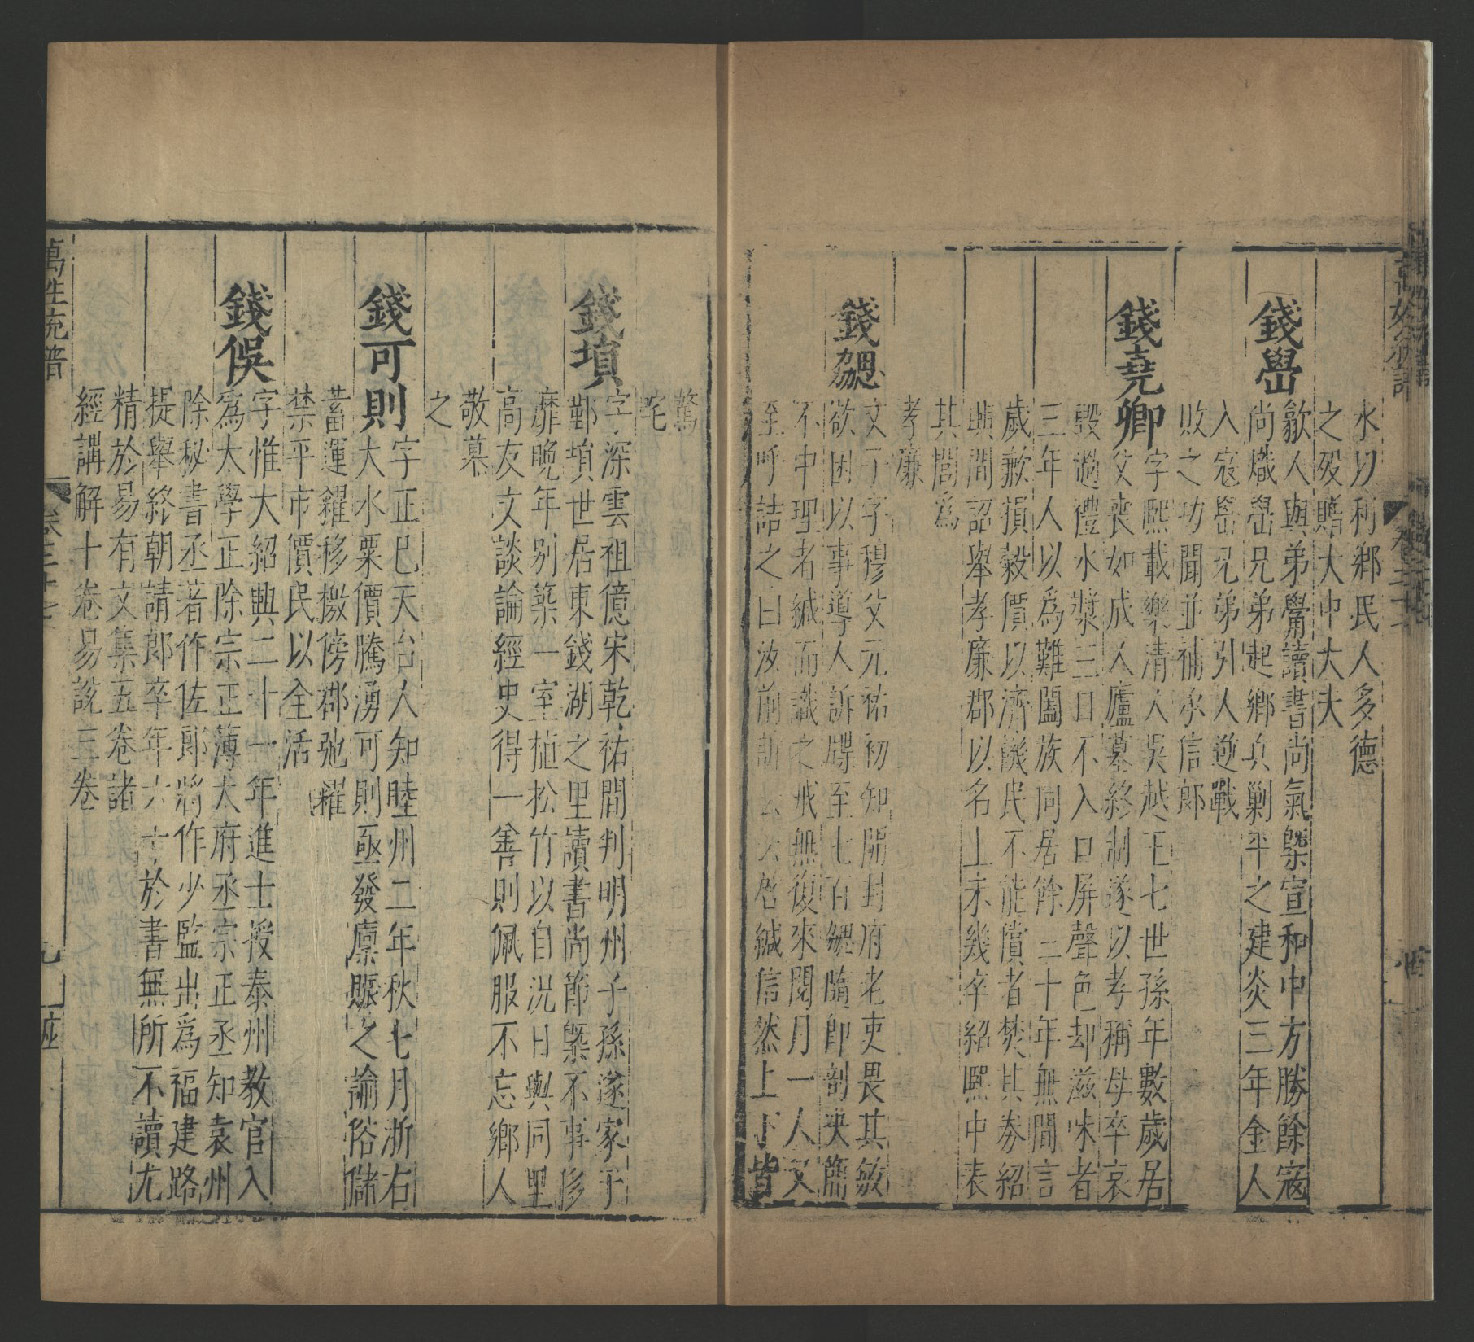 水以利鄉民人多德
之歿贈大中大夫
錢㟧
歙人與弟觷讀書尚氣槩宣和中方勝餘寇
尚熾㟧兄弟起鄉兵剿平之建炎三年金人
入寇㟧兄弟引人逆戰
敗之功聞並補承信郎
錢堯卿
字熙載樂清人吳越王七世孫年數歲居
父喪如成人廬墓終制遂以孝稱母卒哀
毀過禮水漿三日不入口屏聲色却滋味者
三年人以為難闔族同居餘三十年無間言
歲歉損穀價以濟饑民不能償者焚其券紹
興間詔舉孝廉郡以名上未幾卒紹熙中表
其閭為
孝廉
錢勰
父 字穆父元祐初知開封府老吏畏其敏
欲困以事導人訴牒至七百勰隨即剖决簡
不中理者緘而識之戒無復來閱月一人又
至呼詰之曰汝前訴云云啓緘信然上下皆
驚
咤
錢塤
字深雲祖億宋乾祐間判明州子孫遂家于
鄞塤世居東錢湖之里讀書尚節槩不事侈
靡晚年别築一室植松竹以自況日與同里
高友文談論經史得一善則佩服不忘鄉人
敬慕
之
錢可則
字正巳天台人知睦州二年秋七月浙右
大水粟價騰湧可則亟發廩賑之諭俗儲
蓄運糴移檄傍郡弛糴
禁平市價民以全活
錢俁
字惟大紹興二十一年進士授泰州教官入
為太學正除宗正薄大府丞宗正丞知袁州
除秘書丞著作佐郎將作少監出為福建路
提舉終朝請郎卒年六十於書無所不讀尤
精於易有文集五卷諸
經講解十卷易說三卷
萬姓統譜
卷二十七